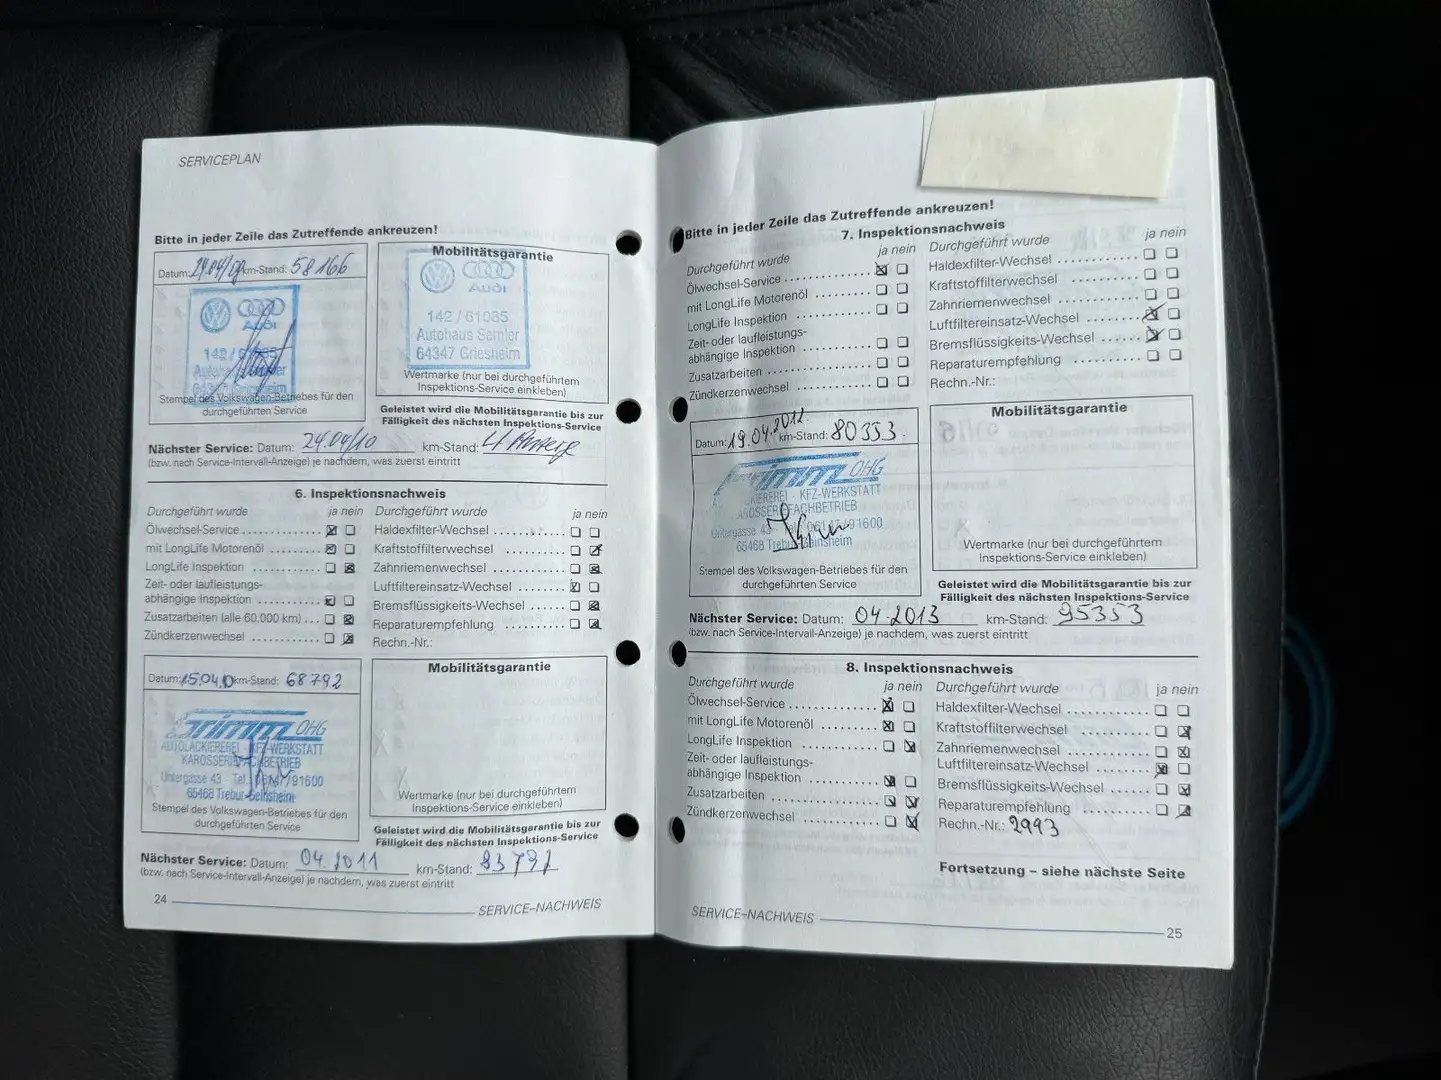 SERVICEPLAN
Bitte in jeder Zeile das Zutreffende ankreuzen!
Datum: 24.04/09 km-Stand: 58166
Audi
142 / 61085
Stempel des Volkswagen-Betriebes für den
durchgeführten Service
Mobilitätsgarantie
Audi
142 / 61085
Autohaus Semler
64347 Griesheim
Wertmarke (nur bei durchgeführtem
Inspektions-Service einkleben)
Geleistet wird die Mobilitätsgarantie bis zur
Fälligkeit des nächsten Inspektions-Service
Nächster Service: Datum: 24.04/10 km-Stand:
(bzw. nach Service-Intervall-Anzeige) je nachdem, was zuerst eintritt
6. Inspektionsnachweis
Durchgeführt wurde ja nein
Ölwechsel-Service
mit LongLife Motorenöl
LongLife Inspektion
Zeit- oder laufleistungs-
abhängige Inspektion
Zusatzarbeiten (alle 60.000 km)
Zündkerzenwechsel
Durchgeführt wurde ja nein
Haldexfilter-Wechsel
Kraftstoffilterwechsel
Zahnriemenwechsel
Luftfiltereinsatz-Wechsel
Bremsflüssigkeits-Wechsel
Reparaturempfehlung
Rechn.-Nr.:
Datum: 15.04.10 km-Stand: 68792
Grimm OHG
AUTOLACKIEREREI - KFZ-WERKSTATT
KAROSSERIEFACHBETRIEB
Untergasse 43 Tel. 06147/91600
65468 Trebur-Geinsheim
Stempel des Volkswagen-Betriebes für den
durchgeführten Service
Mobilitätsgarantie
Wertmarke (nur bei durchgeführtem
Inspektions-Service einkleben)
Geleistet wird die Mobilitätsgarantie bis zur
Fälligkeit des nächsten Inspektions-Service
Nächster Service: Datum: 04.2011 km-Stand: 83792
(bzw. nach Service-Intervall-Anzeige) je nachdem, was zuerst eintritt
24
SERVICE–NACHWEIS
Bitte in jeder Zeile das Zutreffende ankreuzen!
7. Inspektionsnachweis
Durchgeführt wurde ja nein
Ölwechsel-Service
mit LongLife Motorenöl
LongLife Inspektion
Zeit- oder laufleistungs-
abhängige Inspektion
Zusatzarbeiten
Zündkerzenwechsel
Durchgeführt wurde ja nein
Haldexfilter-Wechsel
Kraftstoffilterwechsel
Zahnriemenwechsel
Luftfiltereinsatz-Wechsel
Bremsflüssigkeits-Wechsel
Reparaturempfehlung
Rechn.-Nr.:
Datum: 19.04.2011 km-Stand: 80353
Grimm OHG
LACKIEREREI - KFZ-WERKSTATT
KAROSSERIEFACHBETRIEB
Untergasse 43 06147/91600
65468 Trebur-Geinsheim
Stempel des Volkswagen-Betriebes für den
durchgeführten Service
Mobilitätsgarantie
Wertmarke (nur bei durchgeführtem
Inspektions-Service einkleben)
Geleistet wird die Mobilitätsgarantie bis zur
Fälligkeit des nächsten Inspektions-Service
Nächster Service: Datum: 04.2013 km-Stand: 95353
(bzw. nach Service-Intervall-Anzeige) je nachdem, was zuerst eintritt
8. Inspektionsnachweis
Durchgeführt wurde ja nein
Ölwechsel-Service
mit LongLife Motorenöl
LongLife Inspektion
Zeit- oder laufleistungs-
abhängige Inspektion
Zusatzarbeiten
Zündkerzenwechsel
Durchgeführt wurde ja nein
Haldexfilter-Wechsel
Kraftstoffilterwechsel
Zahnriemenwechsel
Luftfiltereinsatz-Wechsel
Bremsflüssigkeits-Wechsel
Reparaturempfehlung
Rechn.-Nr.: 2993
Fortsetzung – siehe nächste Seite
SERVICE–NACHWEIS
25